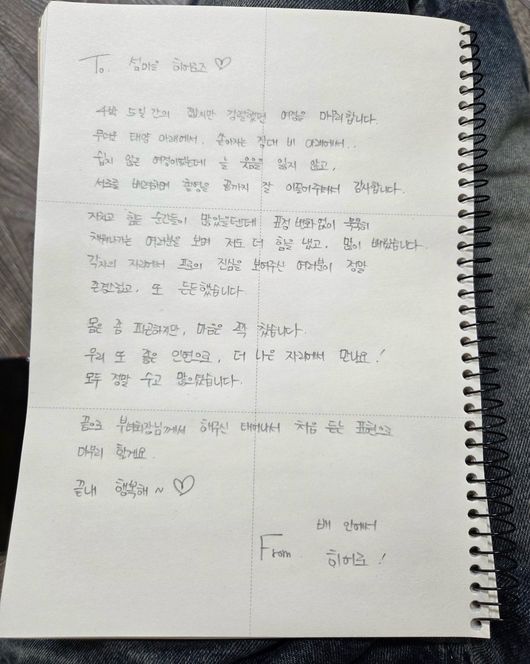 To. 섬마을 히어로즈 ♡
4박 5일간의 짧지만 강렬했던 여정을 마무리합니다.
무더운 태양 아래에서, 쏟아지는 장대 비 아래에서..
쉽지 않은 여정이었는데 늘 웃음을 잃지 않고,
서로를 배려하며 촬영을 끝까지 잘 이끌어주셔서 감사합니다.
지치고 힘든 순간들이 많았을텐데 표정 변화 없이 묵묵히
채워나가는 여러분을 보며 저도 더 힘을 냈고, 많이 배웠습니다.
각자의 자리에서 프로의 진심을 보여주신 여러분이 정말
존경스럽고, 또 든든했습니다.
몸은 좀 피곤하지만, 마음은 꽉 찼습니다.
우리 또 좋은 인연으로, 더 나은 자리에서 만나요!
모두 정말 수고 많으셨습니다.
끝으로 부녀회장님께서 해주신 태어나서 처음 듣는 표현으로
마무리 할게요.
끝내 행복해~ ♡
배 안에서
From. 히어로!